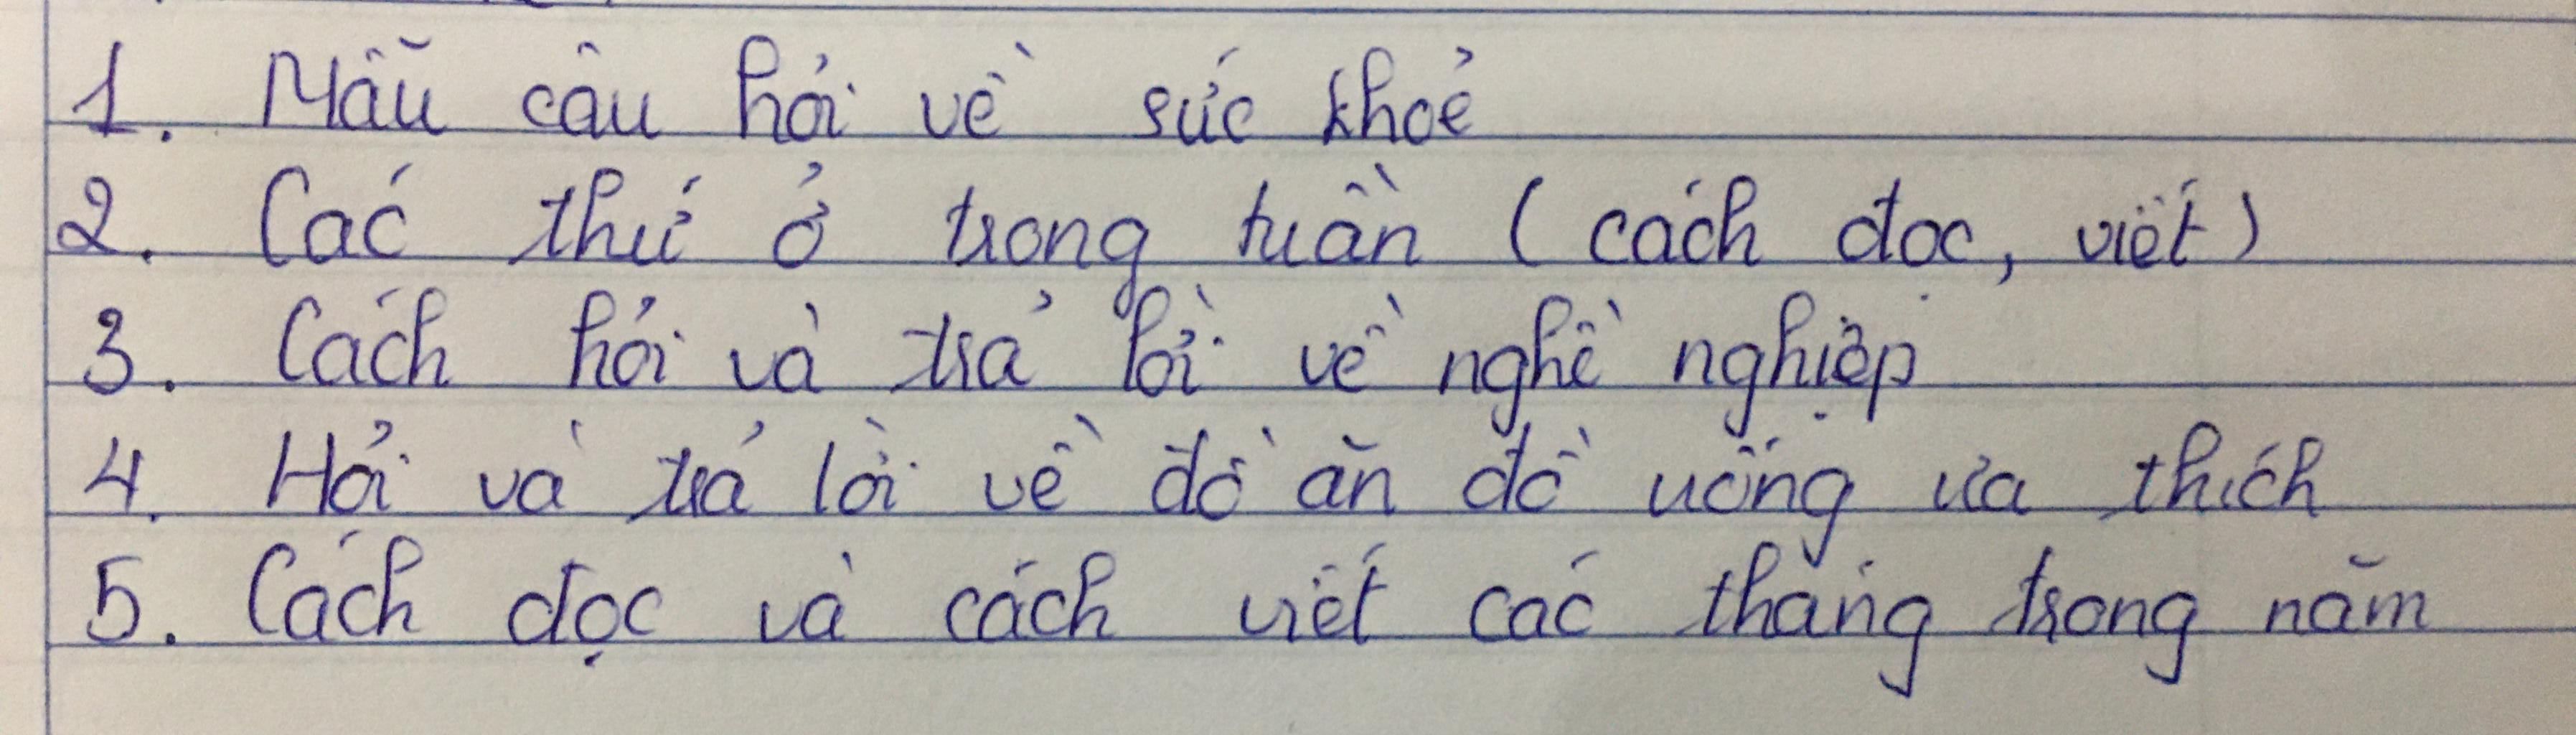 1. Mẫu câu hỏi về sức khoẻ
2. Các thứ ở trong tuần (cách đọc, viết)
3. Cách hỏi và trả lời về nghề nghiệp
4. Hỏi và trả lời về đồ ăn đồ uống ưa thích
5. Cách đọc và cách viết các tháng trong năm